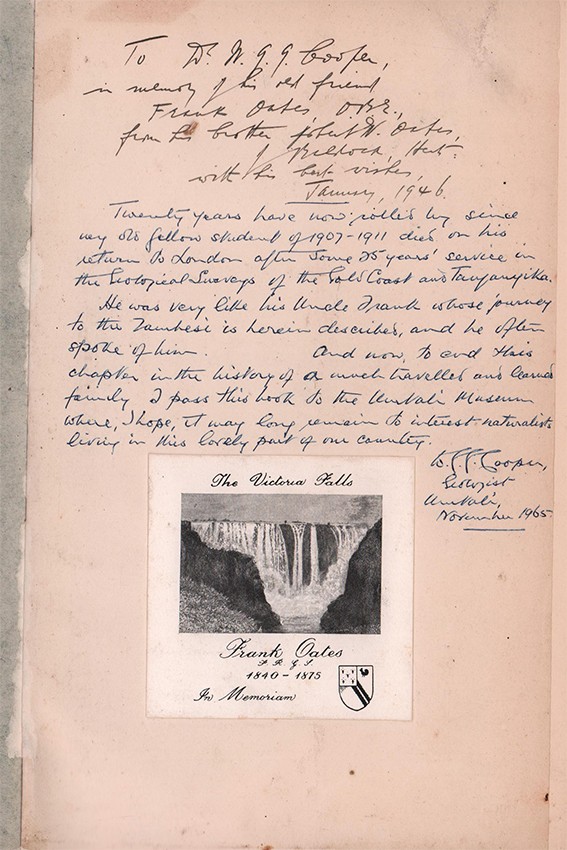 To Dr. W. G. G. Cooper,
in memory of his old friend
Frank Oates, OBE.,
from his brother Robert W. Oates,
of Baldock, Herts.
with his best wishes,
January, 1946.
Twenty years have now rolled by since
my old fellow student of 1907-1911 died on his
return to London after some 25 years' service in
the Geological Surveys of the Gold Coast and Tanganyika.
He was very like his Uncle Frank whose journey
to the Zambesi is herein described, and he often
spoke of him. And now, to end this
chapter in the history of a much travelled and learned
family I pass this book to the Umtali Museum
where, I hope, it may long remain to interest naturalists
living in this lovely part of our country.
W. G. G. Cooper,
Geologist
Umtali,
November 1965.
The Victoria Falls
Frank Oates
F R G S
1840 - 1875
In Memoriam